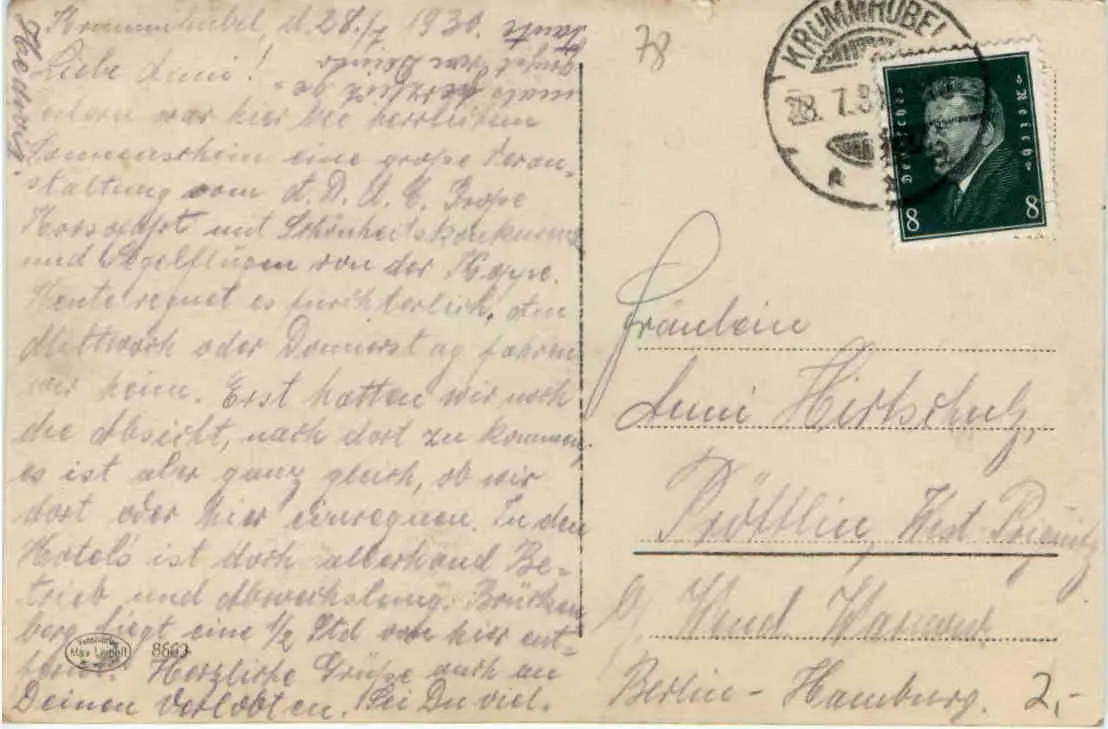 Krummhübel, d. 28./7. 1930.
Liebe Anni!
Gestern war hier bei herrlichem
Sonnenschein eine große Veran-
staltung vom A. D. A. C. Große
Korsofahrt mit Schönheitskonkurrenz
und Segelflügen von der Koppe.
Heute regnet es fürchterlich. Am
Mittwoch oder Donnerstag fahren
wir heim. Erst hatten wir noch
die Absicht, nach dort zu kommen,
es ist aber ganz gleich, ob wir
dort oder hier einregnen. In den
Hotels ist doch allerhand Be-
trieb und Abwechslung. Brücken-
berg liegt eine 1/2 Std von hier ent-
fernt. Herzliche Grüße auch an
Deinen Verlobten. Sei Du viel-
mals herzlich ge-
küßt von Deiner
Tante
Hedwig.
78
KRUMMHÜBEL
28. 7. 30
Deutsches Reich
8 8
Fräulein
Anni Hirtschulz,
Pröttlin, West-Prignitz
b/ Wend. Warnow
Berlin-Hamburg.
2,-
Max Leipelt
8663